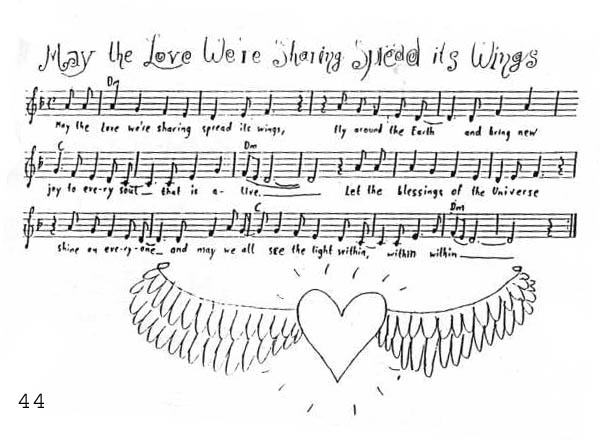 May the Love We're Sharing Spread its Wings
Dm
May the Love we're sharing spread its wings, fly around the Earth and bring new
C Dm
joy to eve-ry soul_ that is a- live. Let the blessings of the Universe
C Dm
shine on eve-ry-one_ and may we all see the light within, within within
44